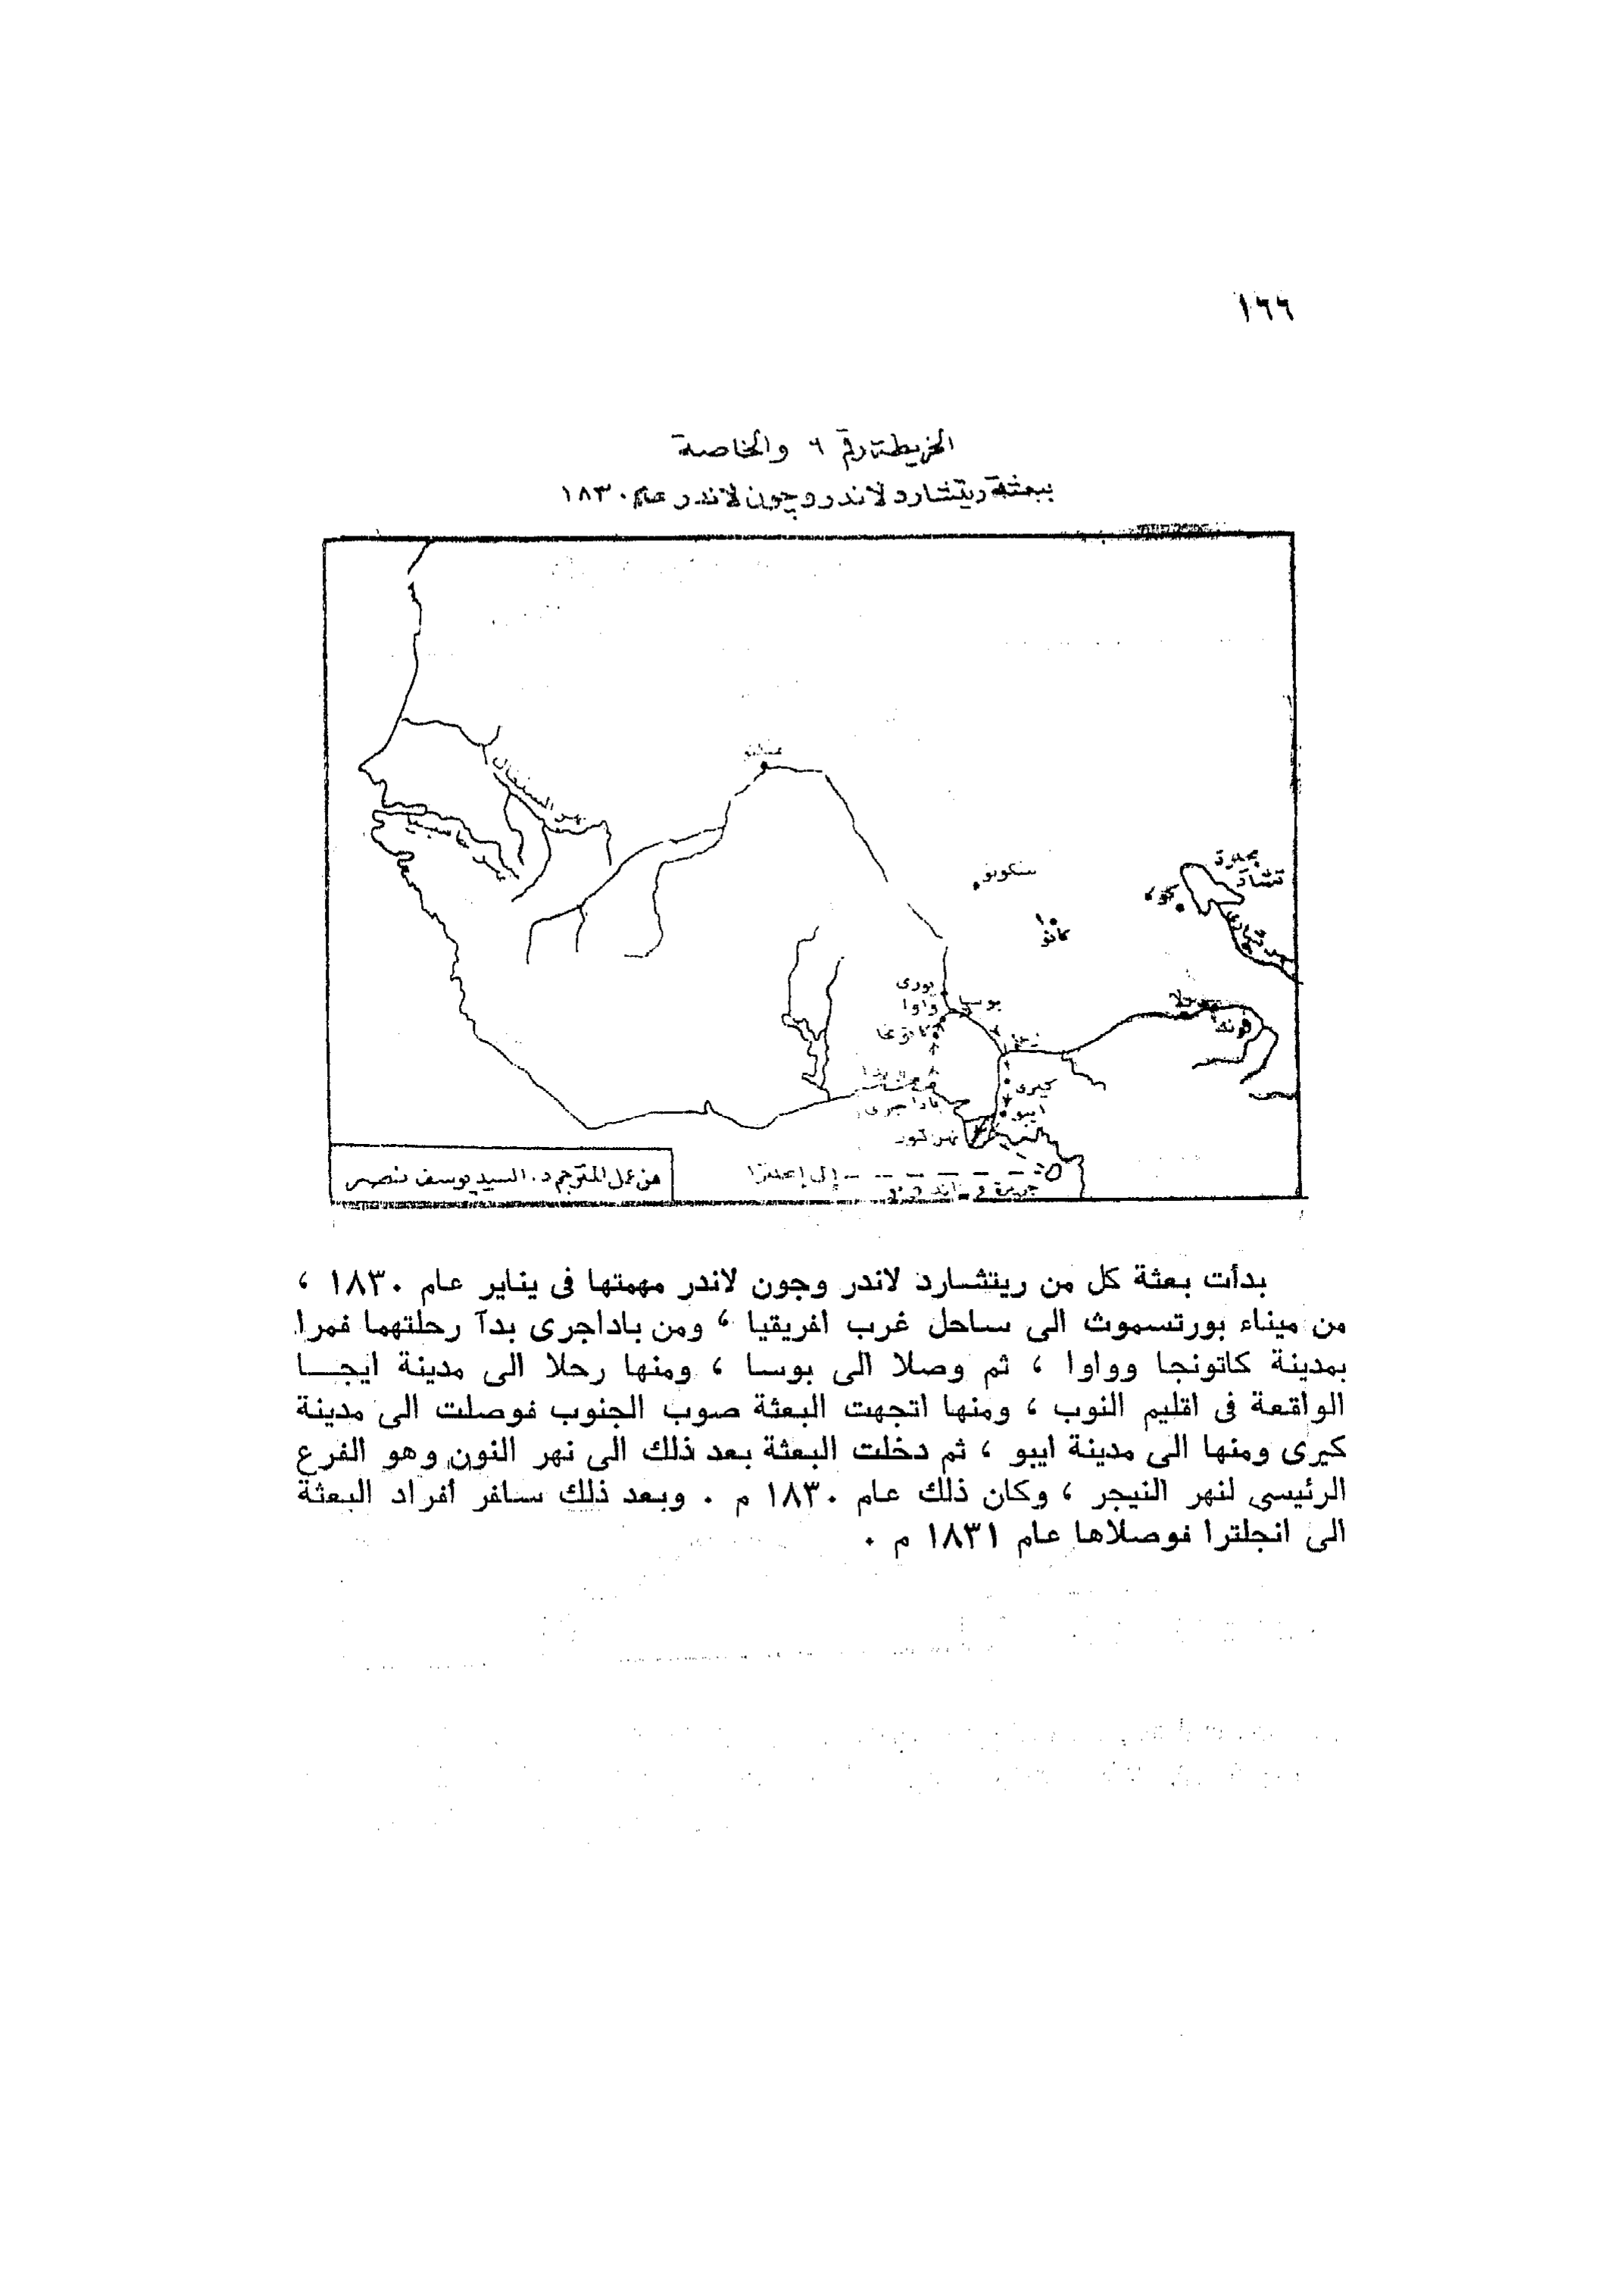 ١٦٦
الخريطة رقم ٦ والخاصة
ببعثة ريتشارد لاندر وچون لاندر عام ١٨٣٠
نهر السنغال
سكوتو
بحيرة
تشاد
كوكا
كانو
يورى
بوسا
واوا
كيرى
ايبو
باداجرى
إلى إنجلترا
جزيرة فرناندوبو
من عمل المترجم د. السيد يوسف نصر
بدأت بعثة كل من ريتشارد لاندر وجون لاندر مهمتها فى يناير عام ١٨٣٠ ،
من ميناء بورتسموث الى ساحل غرب افريقيا ، ومن باداجرى بدآ رحلتهما فمرا
بمدينة كاتونجا وواوا ، ثم وصلا الى بوسا ، ومنها رحلا الى مدينة ايجــا
الواقعة فى اقليم النوب ، ومنها اتجهت البعثة صوب الجنوب فوصلت الى مدينة
كيرى ومنها الى مدينة ايبو ، ثم دخلت البعثة بعد ذلك الى نهر النون وهو الفرع
الرئيسى لنهر النيجر ، وكان ذلك عام ١٨٣٠ م . وبعد ذلك سافر أفراد البعثة
الى انجلترا فوصلاها عام ١٨٣١ م .